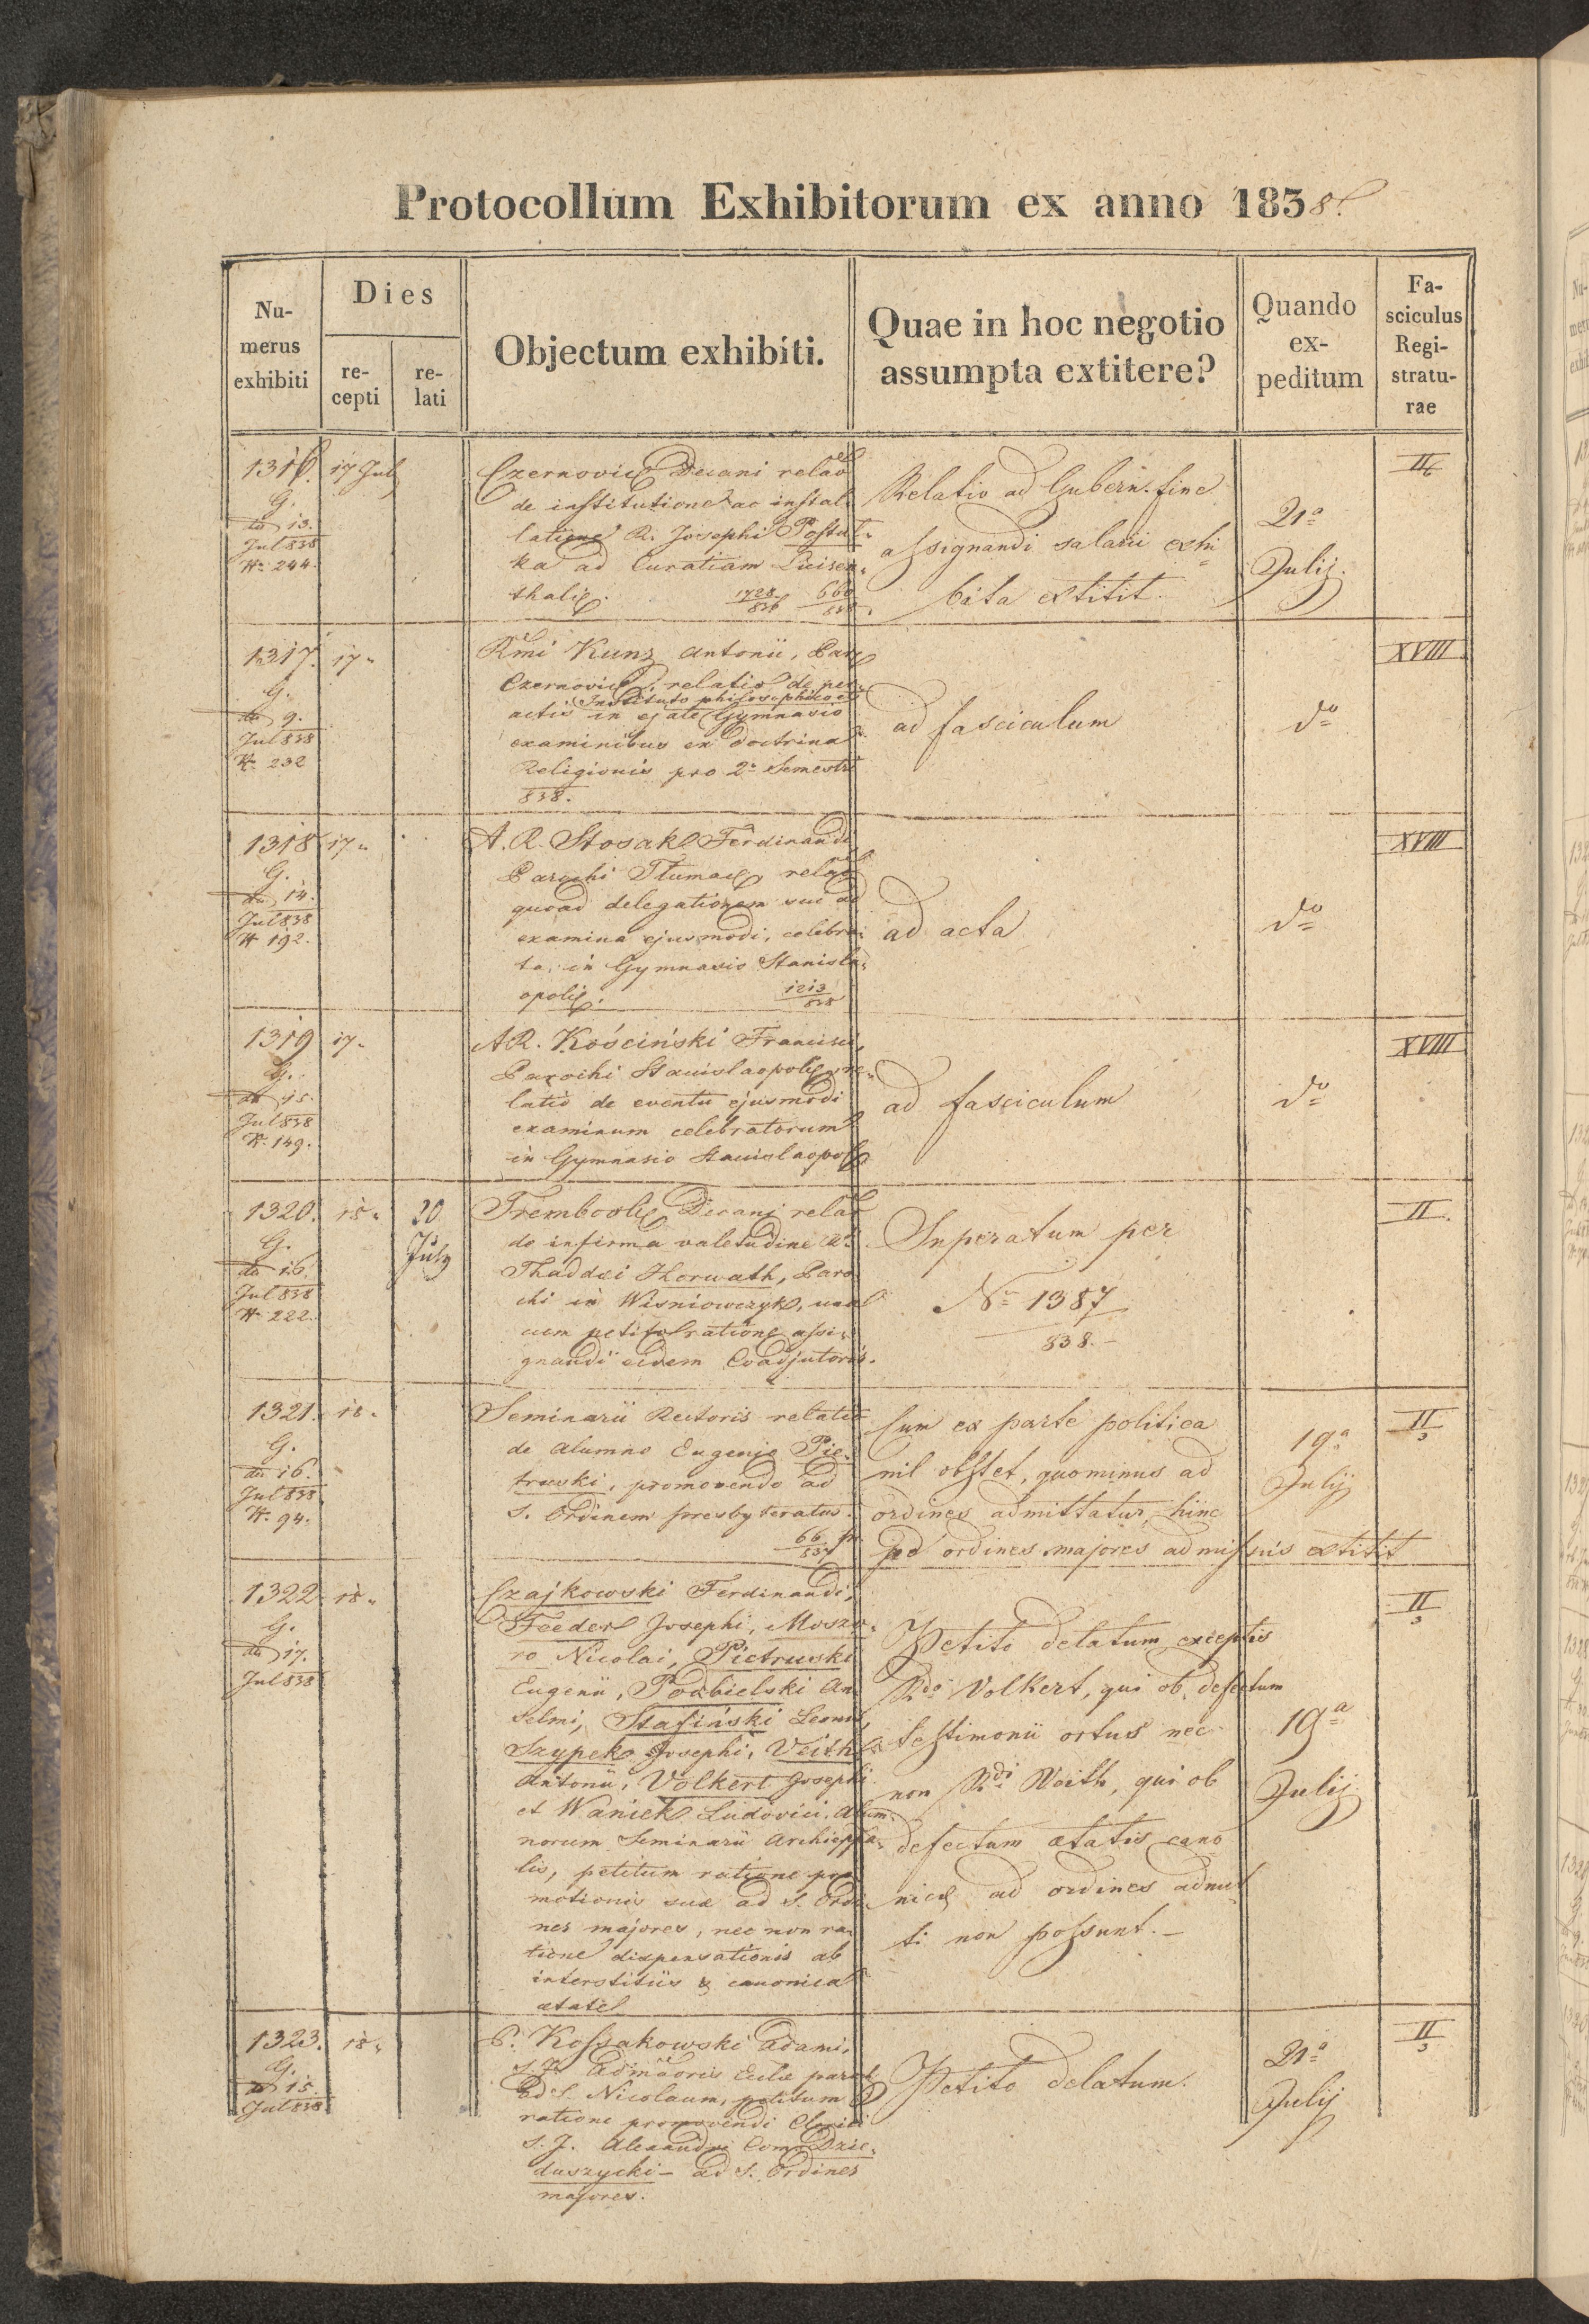 Protocollum Exhibitorum ex anno 1838.
Nu-
merus
exhibiti
Dies
re-
cepti
re-
lati
Objectum exhibiti.
Quae in hoc negotio
assumpta extitere?
Quando
ex-
peditum
Fa-
sciculus
Regi-
stratu-
rae
1316. 17 July
G.
13.
Jul 838
N. 244.
Czernovic Decani relao
de institutione ac instal-
latione R. Josephi Postul-
ka ad Curatiam Luisen-
thalie. 1728/836 660/838
Relatio ad Gubern. fine
assignandi salarii exhi-
bita extitit.
21a
Julij.
II/6
1317. 17 "
G.
9.
Jul 838
N. 232
Rmi Kunz Antonii, Par
Czernovic, relatio de per-
Instituto philosophico et
actis in ejate Gymnasio
examinibus ex doctrina
Religionis pro 2o Semestri
838.
ad fasciculum
do
XVIII
1318 17 "
G.
14.
Jul 838
N. 192.
A. R. Stosak Ferdinandi
Parochi Tlumac, relao
quoad delegationem sui ad
examina ejusmodi, celebra-
ta in Gymnasio Stanisla-
opoli. 1213/838
ad acta
do
XVIII
1319 17 "
G.
15.
Jul 838
N. 149.
A R. Kościński Francisci,
Parochi Stanislaopol, re-
latio de eventu ejusmodi
examinum celebratorum
in Gymnasio Stanislaopol
ad fasciculum
do
XVIII
1320. 18 " 30
July
G.
16.
Jul 838
N. 222.
Trembovl Decani relao
de infirma valetudine R.
Thaddæi Horwath, Paro-
chi in Wisniowczyk, una
cum petito ratione assi-
gnandi eidem Coadjutoris.
Superatum per
No 1387
838.-
II.
1321. 18 "
G.
16.
Jul 838
N. 94.
Seminarii Rectoris relatio
de Alumno Eugenio Pie-
truski, promovendo ad
S. Ordinem presbyteratus.
66/837
Cum ex parte politica
nil obstet, quominus ad
ordines admittatur, hinc
ad ordines majores admissus extitit
19a
Julij
II/3
1322 18 "
G.
17.
Jul 838
Czajkowski Ferdinandi,
Feeder Josephi, Moszo-
ro Nicolai, Pietruski
Eugenii, Podbielski An-
selmi, Stafiński Leonis,
Szypek Josephi, Veith
Antonii, Volkert Josephi
et Waniek Ludovici, Alum-
norum Seminarii Archieppa-
lis, petitum ratione pro
motionis suæ ad S. Ordi-
nes majores, nec non ra-
tione dispensationis ab
interstitiis & canonica
ætate
Petito delatum exceptis
Rdo Volkert, qui ob defectum
testimonii ortus nec
non Rdi Weith, qui ob
defectum ætatis cano
nicæ ad ordines admit
ti non possunt. -
19a
Julij
II/3
1323. 18 "
G.
15.
Jul 838
P. Kossakowski Adami,
S. J. Admaoris Eccliæ paral
ad S. Nicolaum, petitum
ratione promovendi Cleric
S. J. Alexandri Com. Dzie-
duszycki - ad S. Ordines
majores.
Petito delatum.
21a
Julij
II/3